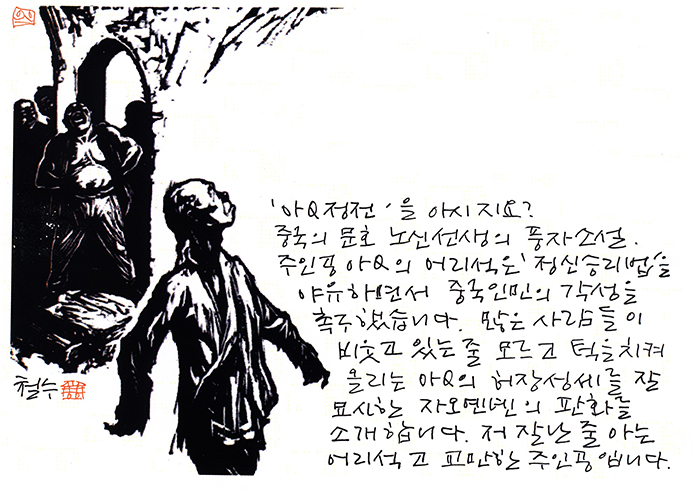 '아Q정전'을 아시지요?
중국의 문호 노신선생의 풍자소설.
주인공 아Q의 어리석은 '정신승리법'을
야유하면서 중국인민의 각성을
촉구했습니다. 많은 사람들이
비웃고 있는 줄 모르고 턱을 치켜
올리는 아Q의 허장성세를 잘
묘사한 자오옌녠의 판화를
소개합니다. 저 잘난 줄 아는
어리석고 교만한 주인공입니다.
철수